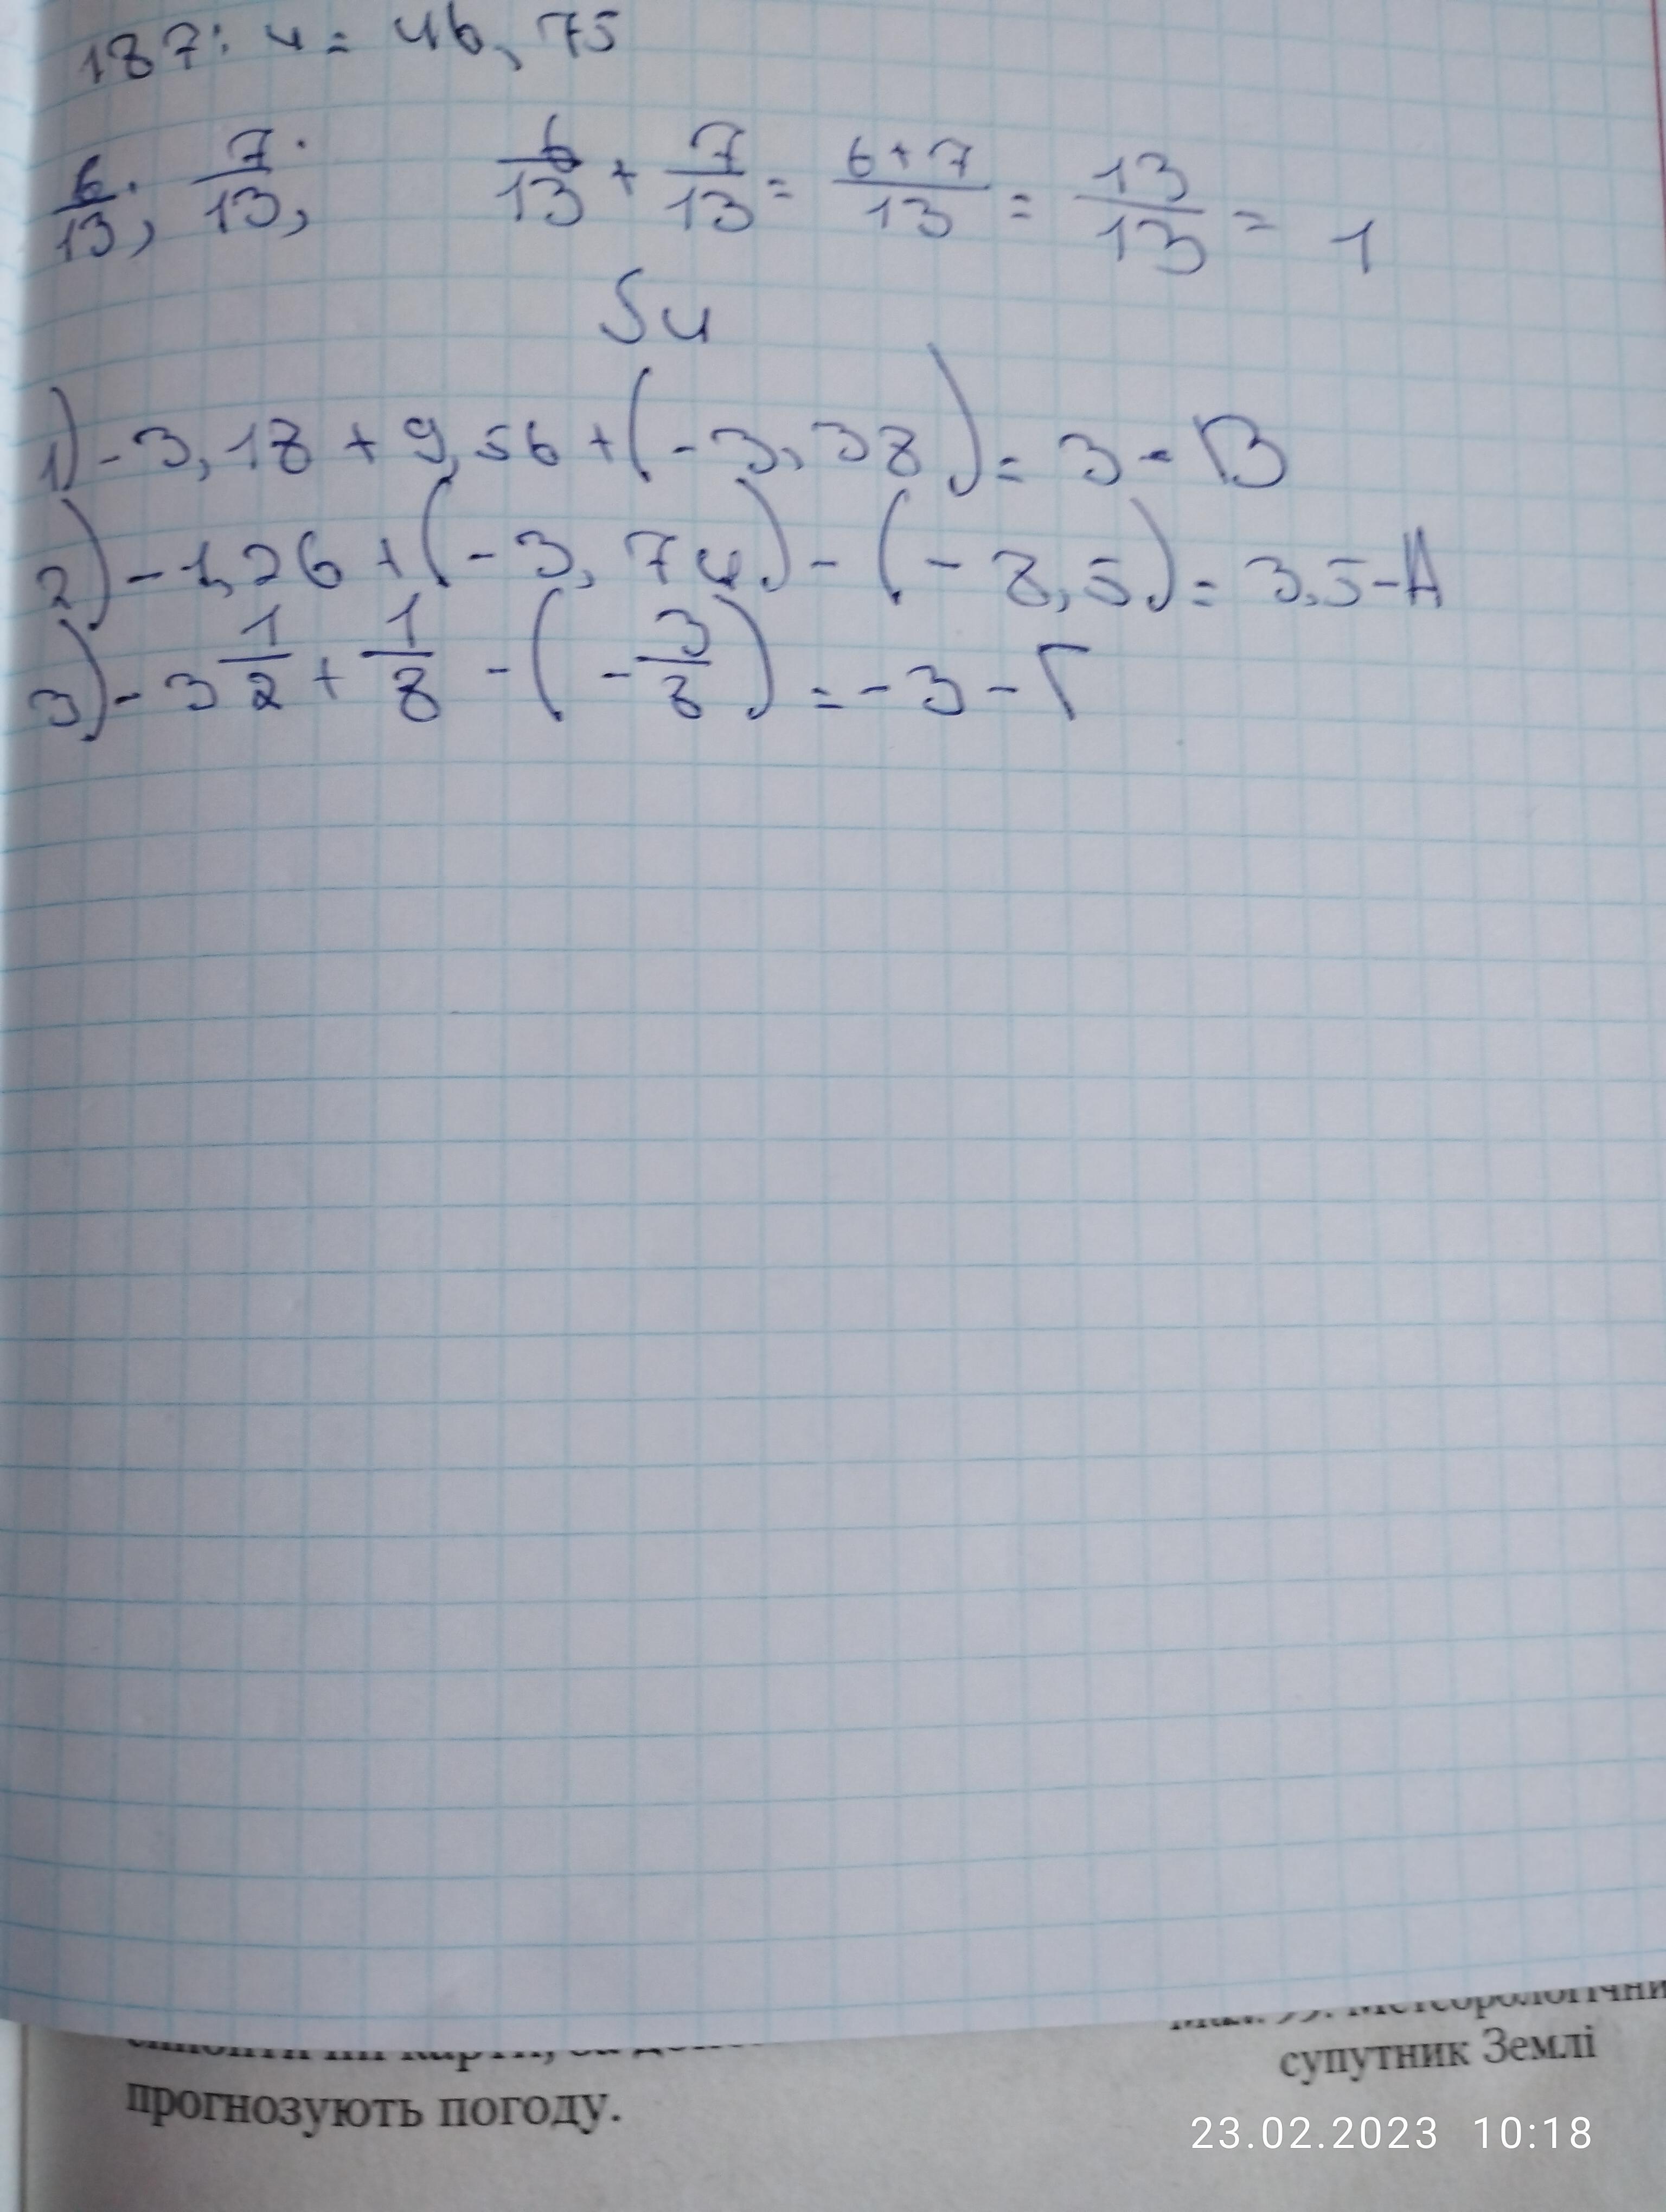 187 : 4 = 46,75
6/13; 7/13; 6/13 + 7/13 = (6+7)/13 = 13/13 = 1
5ч
1) -3,18 + 9,56 + (-3,38) = 3 - В
2) -1,26 + (-3,74) - (-8,5) = 3,5 - А
3) -3 1/2 + 1/8 - (-3/8) = -3 - Г
супутник Землі
прогнозують погоду.
23.02.2023 10:18